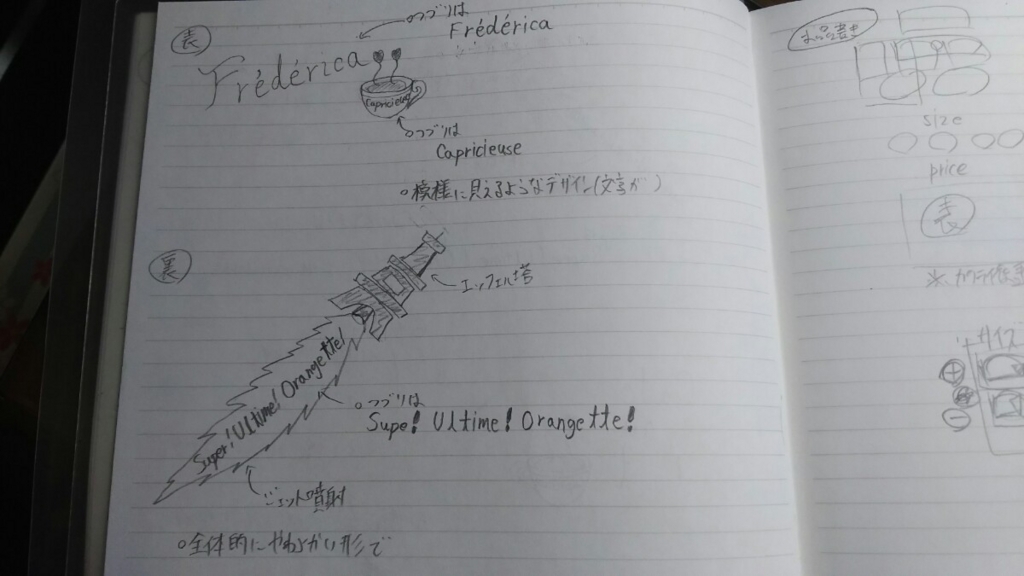 表
○つづりは
Frédérica
Frédérica
Capricieuse
○つづりは
Capricieuse
○模様に見えるようなデザイン(文字が)
裏
エッフェル塔
Super! Ultime! Orangette!
○つづりは
Supe! Ultime! Orangette!
ジェット噴射
○全体的にやわらかい形で
size
price
表
サイズ
+
−